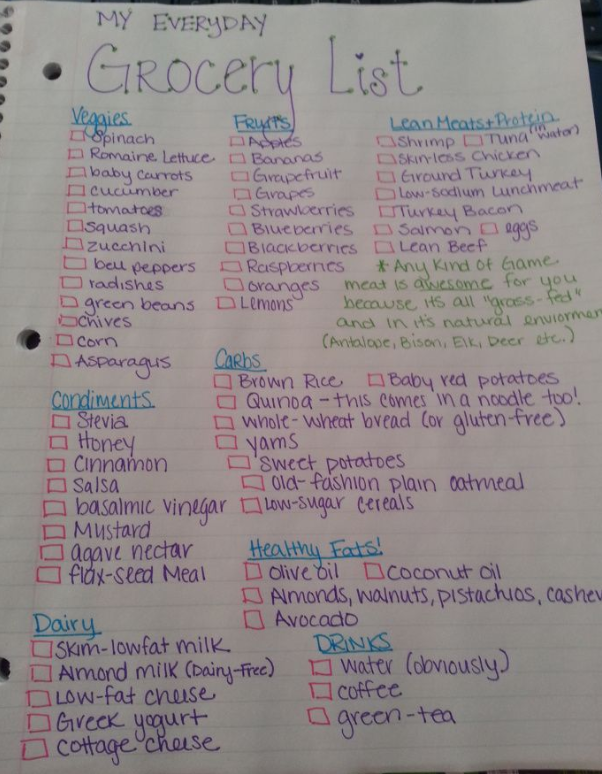 MY EVERYDAY
GROCERY LIST
Veggies
Spinach
Romaine Lettuce
baby carrots
cucumber
tomatoes
squash
zucchini
bell peppers
radishes
green beans
chives
corn
Asparagus
Fruits
Apples
Bananas
Grapefruit
Grapes
Strawberries
Blueberries
Blackberries
Raspberries
oranges
Lemons
Lean Meats + Protein
Shrimp Tuna (in water)
Skin-less Chicken
Ground Turkey
Low-sodium Lunchmeat
Turkey Bacon
Salmon eggs
Lean Beef
* Any Kind of Game
meat is awesome for you
because its all "grass-fed"
and in it's natural enviorment
(Antalope, Bison, Elk, Deer etc.)
Carbs
Brown Rice Baby red potatoes
Quinoa - this comes in a noodle too!
whole-wheat bread (or gluten-free)
yams
Sweet potatoes
old-fashion plain oatmeal
Low-sugar cereals
Condiments
Stevia
Honey
Cinnamon
Salsa
basalmic vinegar
Mustard
agave nectar
flax-seed Meal
Healthy Fats!
Olive oil Coconut oil
Almonds, walnuts, pistachios, cashew
Avocado
Dairy
Skim-lowfat milk
Almond milk (Dairy-Free)
Low-fat cheese
Greek yogurt
cottage cheese
DRINKS
water (obviously)
coffee
green-tea